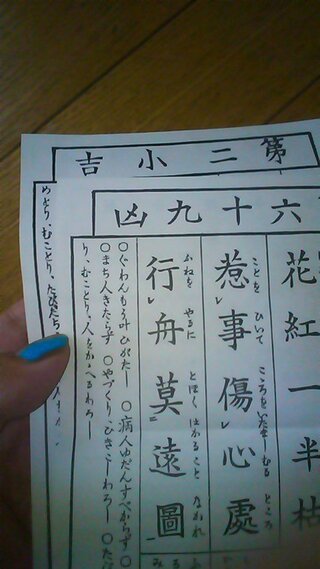 第二小吉
むことり、たびだち
六十九凶
花紅一半枯
ことを ひいて こころをいたましむる ところ
惹事傷心處
ふねを やるに とほく はかること なかれ
行舟莫遠圖
○ぐわんもう叶ひがたし ○病人ゆだんすべからず ○
○まち人きたらず ○やづくり、ひきこしわろし ○たび
り、むことり、人をかゝへるわろし